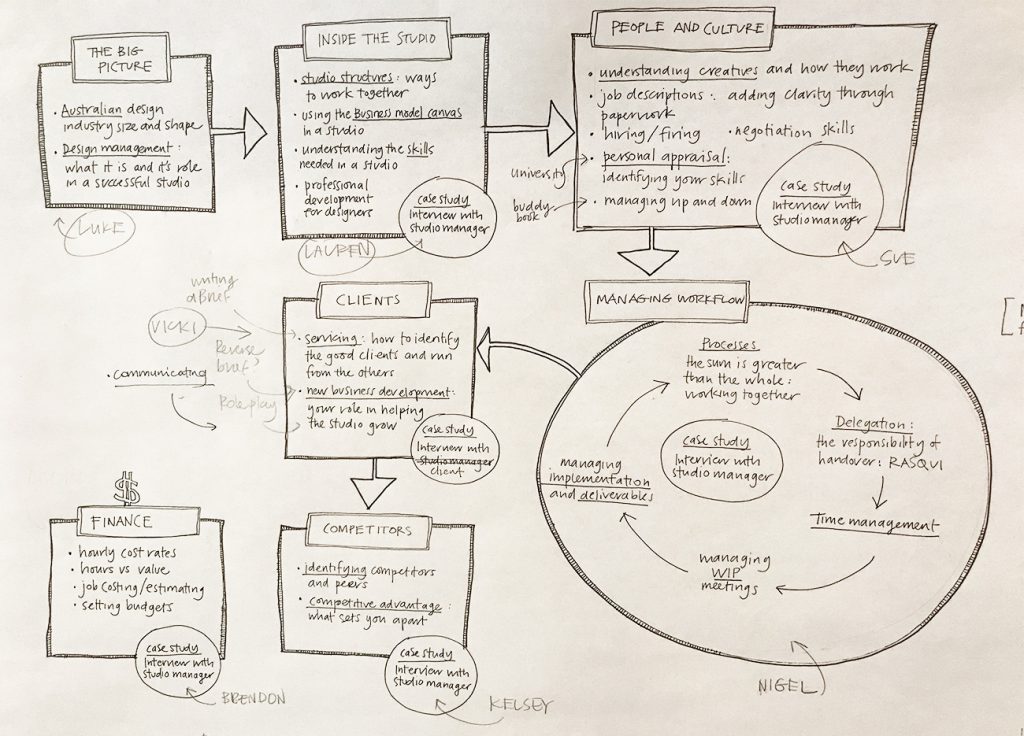 THE BIG-
PICTURE
• Australian design
industry size and shape
• Design management:
what it is and it's role
in a successful studio
LUKE
INSIDE THE STUDIO
• studio structures: ways
to work together
• using the Business model canvas
in a studio
• understanding the skills
needed in a studio
• professional
development
for designers
case study
Interview with
studio manager
LAUREN
PEOPLE AND CULTURE
• understanding creatives and how they work
• job descriptions: adding clarity through
paperwork
• hiring/firing • negotiation skills
• personal appraisal:
identifying your skills
• managing up and down
university
buddy
book
case study
Interview with
studio manager
SUE
MANAGING WORKFLOW
Processes
the sum is greater
than the whole:
working together
Delegation:
the responsibility of
handover: RASQVI
Time management
managing
WIP
meetings
managing
implementation
and deliverables
case study
Interview with
studio manager
NIGEL
CLIENTS
• servicing: how to identify
the good clients and run
from the others
• new business development:
your role in helping
the studio grow
case study
Interview with
studio manager
client
writing
a Brief
VICKI
Reverse
brief?
Role play
• communicating
COMPETITORS
• identifying competitors
and peers
• competitive advantage:
what sets you apart
case study
Interview with
studio manager
KELSEY
$
FINANCE
• hourly cost rates
• hours vs value
• job costing/estimating
• setting budgets
case study
Interview with
studio manager
BRENDON